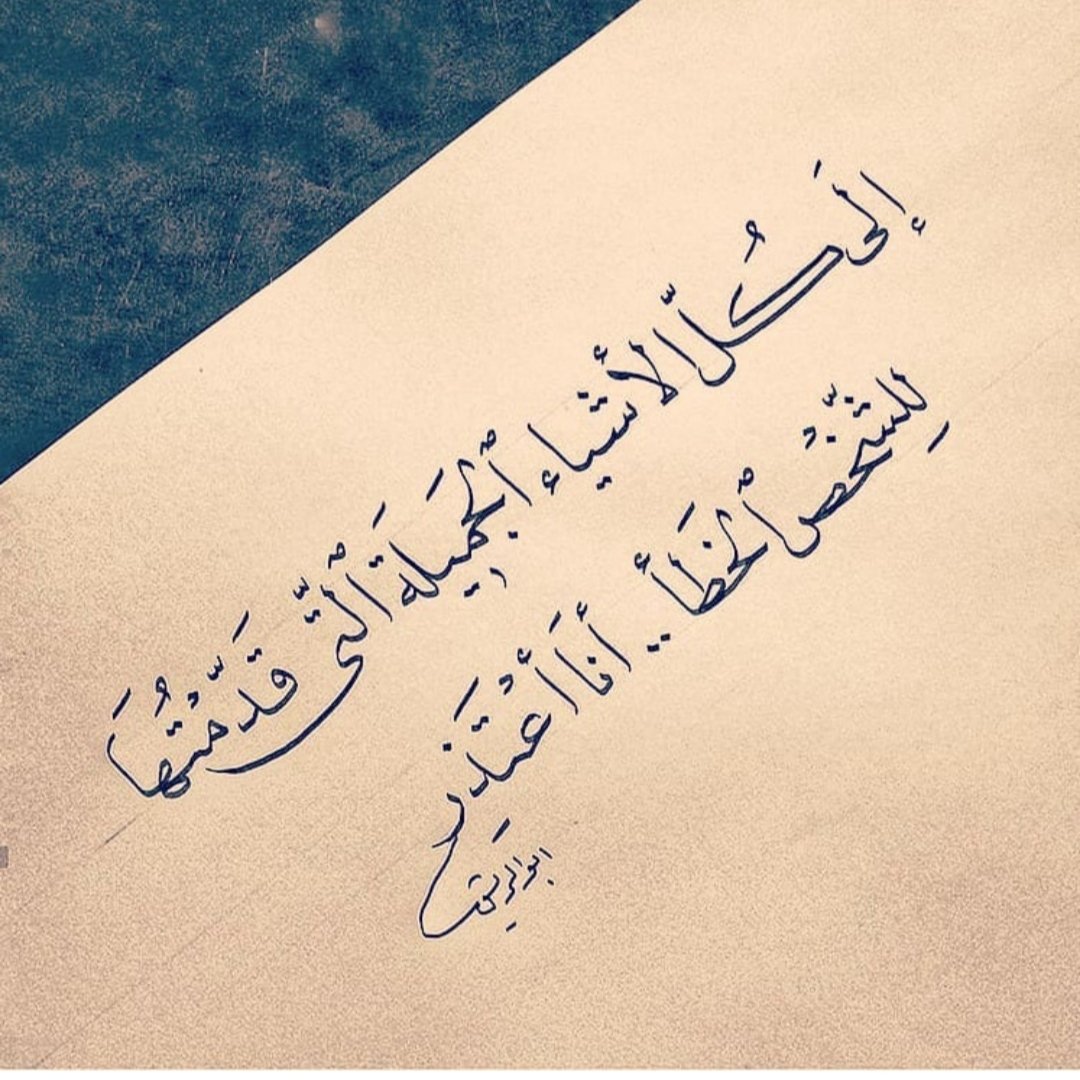 إلَى كُلّ الأشياء ٱلجَميلَة ٱلتّي قَدّمْتُهَا
لِلشّخْص ٱلخَطَأ.. أنَا أعْتَذر